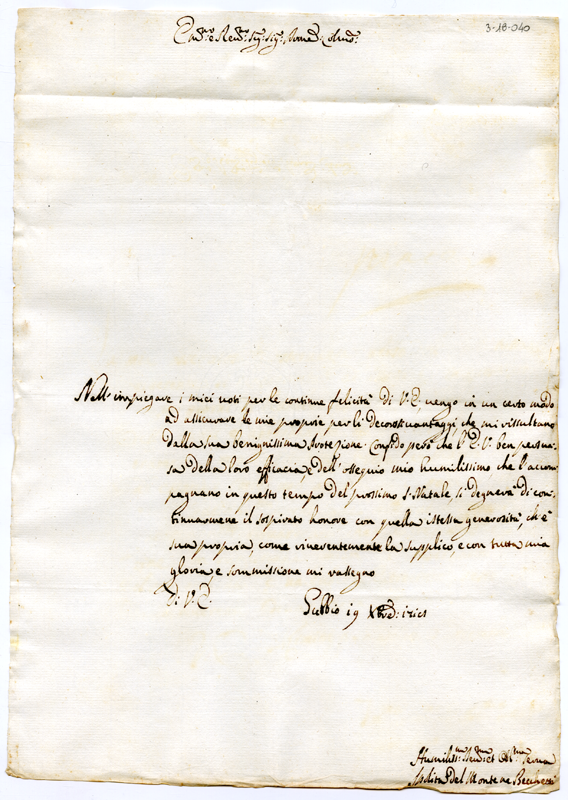 3-18-040
Em.mo e Rev.mo Sig.r Sig.r Pron.e Col.mo
Nell'impiegare i miei voti per le continue felicità di V.E. vengo in un certo modo
ad assicurare le mie proprie per li decorosi vantaggi che mi risultano
dalla sua benignissima Protezione. Confido però che l'E.V. ben persua-
sa della loro efficacia, e dell'ossequio mio humilissimo che l'accom-
pagnano in questo tempo del prossimo S. Natale, si degnerà di con-
tinuarmene il sospirato honore con quella istessa generosità, ch'è
sua propria, come riverentemente la supplico, e con tutta mia
gloria e sommissione mi rassegno
Di V.E.
Gubbio 19 Xbre
Humiliss.ma Serva
del Monte ne Becchetti